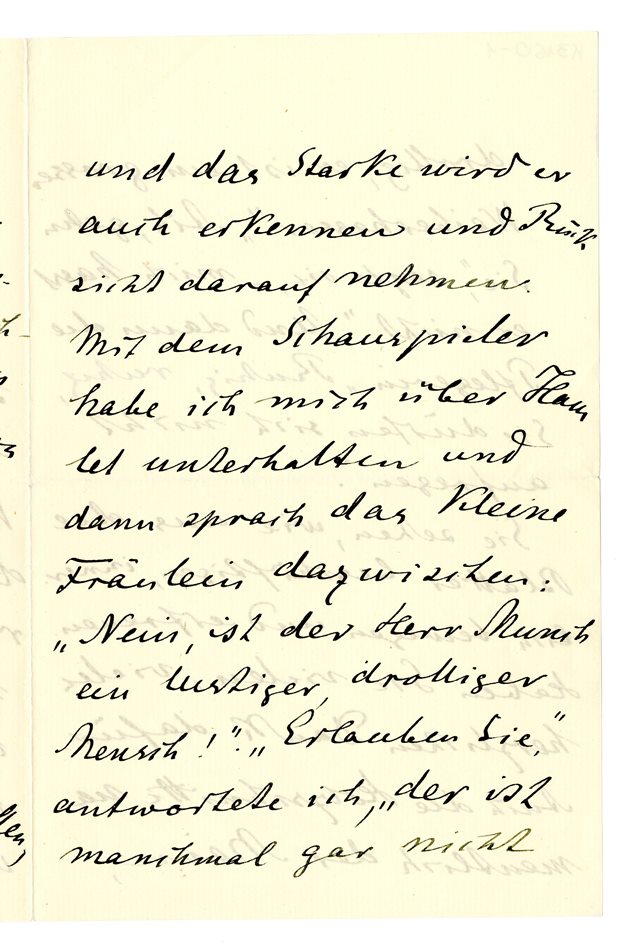 und das Starke wird er
auch erkennen und Rück
sicht darauf nehmen.
Mit dem Schauspieler
habe ich mich über Ham
let unterhalten und
dann sprach das kleine
Fräulein dazwischen:
„Nein, ist der Herr Munch
ein lustiger, drolliger
Mensch!" „Erlauben Sie,"
antwortete ich, „der ist
manchmal gar nicht